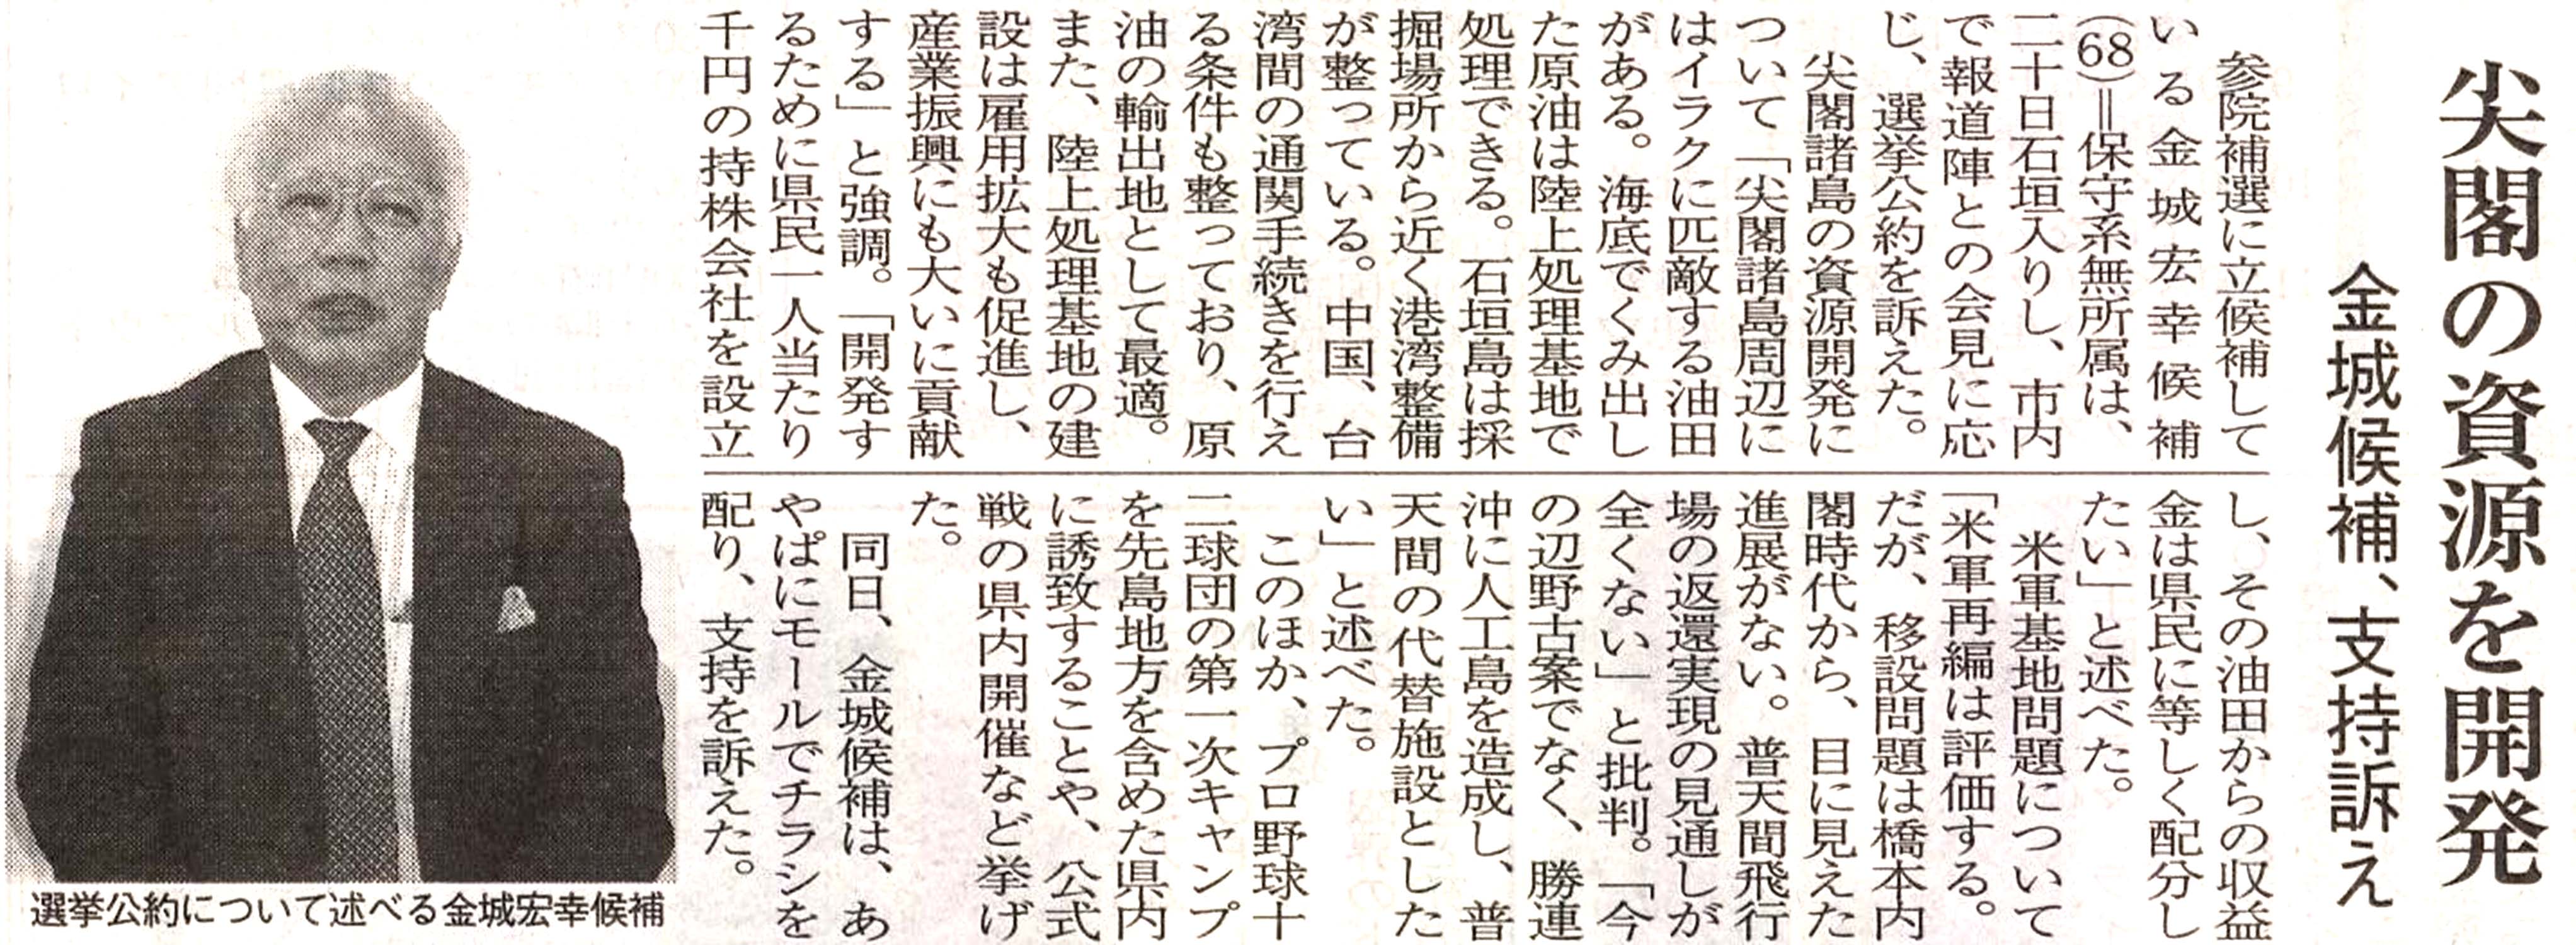 尖閣の資源を開発
金城候補、支持訴え
参院補選に立候補して
いる金城宏幸候補
(68)＝保守系無所属は、
二十日石垣入りし、市内
で報道陣との会見に応
じ、選挙公約を訴えた。
尖閣諸島の資源開発に
ついて「尖閣諸島周辺に
はイラクに匹敵する油田
がある。海底でくみ出し
た原油は陸上処理基地で
処理できる。石垣島は採
掘場所から近く港湾整備
が整っている。中国、台
湾間の通関手続きを行え
る条件も整っており、原
油の輸出地として最適。
また、陸上処理基地の建
設は雇用拡大も促進し、
産業振興にも大いに貢献
する」と強調。「開発す
るために県民一人当たり
千円の持株会社を設立
し、その油田からの収益
金は県民に等しく配分し
たい」と述べた。
米軍基地問題について
「米軍再編は評価する。
だが、移設問題は橋本内
閣時代から、目に見えた
進展がない。普天間飛行
場の返還実現の見通しが
全くない」と批判。「今
の辺野古案でなく、勝連
沖に人工島を造成し、普
天間の代替施設とした
い」と述べた。
このほか、プロ野球十
二球団の第一次キャンプ
を先島地方を含めた県内
に誘致することや、公式
戦の県内開催など挙げ
た。
同日、金城候補は、あ
やぱにモールでチラシを
配り、支持を訴えた。
選挙公約について述べる金城宏幸候補